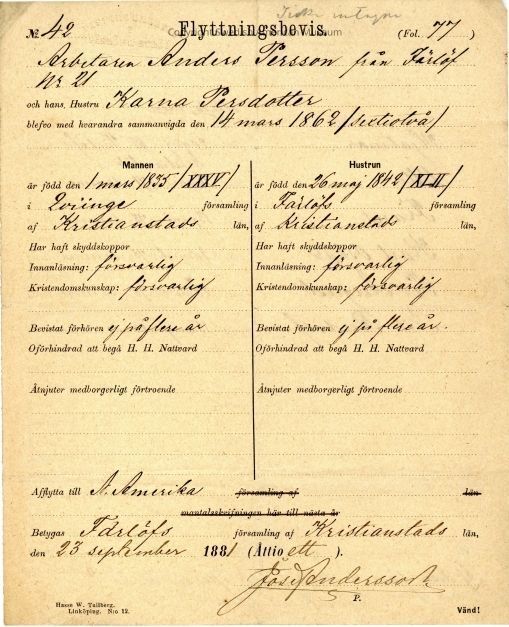 № 42 Flyttningsbevis. (Fol. 77)
Arbetaren Anders Persson från Färlöf
Nr 21
och hans Hustru Karna Persdotter
blefvo med hvarandra sammanvigda den 14 mars 1862 /sextiotvå/
Mannen
är född den 1 mars 1835 /XXXV/
i Qviinge församling
af Kristianstads län,
Har haft skyddskoppor
Innanläsning: försvarlig
Kristendomskunskap: försvarlig
Bevistat förhören ej på flere år
Oförhindrad att begå H. H. Nattvard
Åtnjuter medborgerligt förtroende
Hustrun
är född den 26 maj 1842 /XLII/
i Färlöfs församling
af Kristianstads län,
Har haft skyddskoppor
Innanläsning: försvarlig
Kristendomskunskap: försvarlig
Bevistat förhören ej på flere år.
Oförhindrad att begå H. H. Nattvard
Åtnjuter medborgerligt förtroende
Afflytta till N. Amerika församling af län
mantalsskrifningen här till nästa år
Betygas Färlöfs församling af Kristianstads län,
den 23 september 1881 (Åttioett).
Andersson
P.
Hasse W. Tullberg.
Linköping. N:o 12.
Vänd!